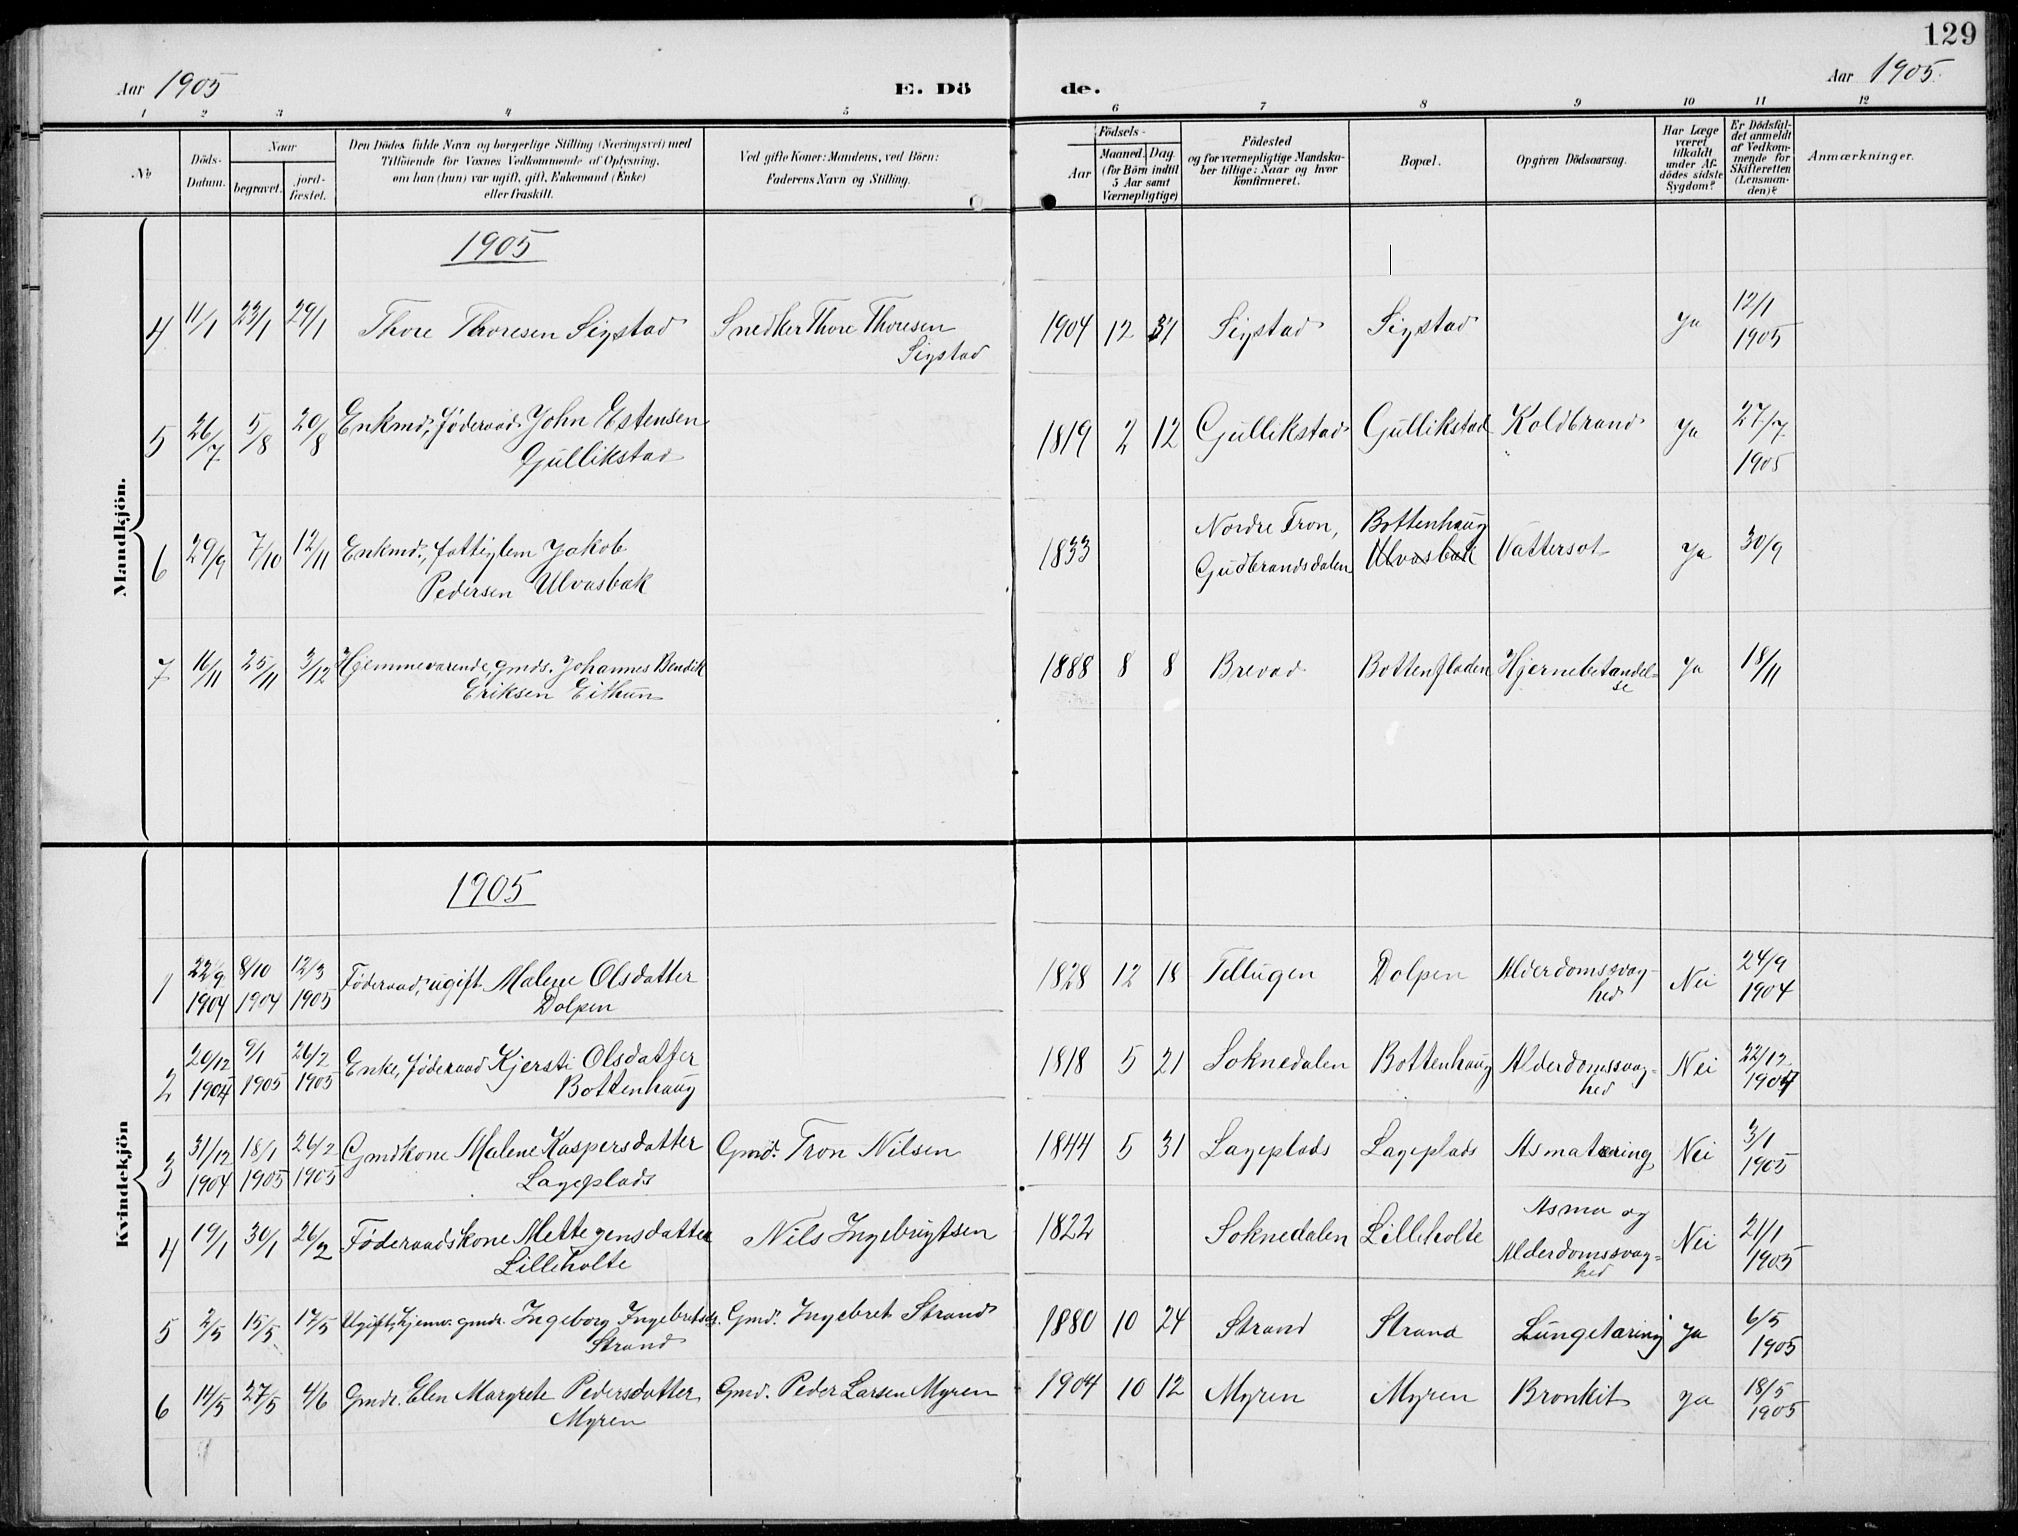 129
Aar 1905
E. Dö
de.
Aar 1905.
1 2 3 4 5 6 7 8 9 10 11 12
No
Döds-
Datum.
Naar
begravet.
jord-
fæstet.
Den Dödes fulde Navn og borgerlige Stilling (Næringsvei) med
Tilföiende for Voxnes Vedkommende af Oplysning,
om han (hun) var ugift, gift, Enkemand (Enke)
eller fraskilt.
Ved gifte Koner: Mandens, ved Börn:
Faderens Navn og Stilling.
Födsels-
Aar
Maaned. Dag.
(for Börn indtil
5 Aar samt
Værnepligtige)
Födested
og for værnepligtige Mandska-
ber tillige: Naar og hvor
konfirmeret.
Bopæl.
Opgiven Dödsaarsag.
Har Læge
været
tilkaldt
under Af-
dödes sidste
Sygdom?
Er Dödsfal-
det anmeldt
af Vedkom-
mende for
Skifteretten
(Lensman-
den)?
Anmærkninger.
Mandkjön.
1905
4 11/1 23/1 29/1 Thore Thoresen Sigstad Snedker Thore Thoresen 1904 12 31 Sigstad Sigstad Ja 12/1
Sigstad 1905
5 26/7 5/8 20/8 Enkmd., föderaad. John Estensen 1819 2 12 Gullikstad Gullikstad Koldbrand Ja 27/7
Gullikstad 1905
6 29/9 7/10 12/11 Enkmd., fattiglem Jakob 1833 Nordre Fron, Bottenhaug Vattersot Ja 30/9
Pedersen Ulvasbak Gudbrandsdalen Ulvasbak
7 16/11 25/11 3/12 Hjemmeværende, gmds. Johannes Bendik 1888 8 8 Brevad Bottenfladen Hjernebetændel- Ja 18/11
Eriksen Eithun se
Kvindekjön
1905
1 22/9 8/10 12/3 Föderaad., ugift Malene Olsdatter 1828 12 18 Dolpen Alderdomssvag- Nei 24/9
1904 1904 1905 Dolpen hed 1904
2 20/12 9/1 26/2 Enke, föderaad Kjersti Olsdatter 1818 5 21 Soknedalen Bottenhaug Alderdomssvag- Nei 22/12
1904 1905 1905 Bottenhaug hed 1904
3 31/12 18/1 26/2 Gmdkone Malene Kaspersdatter Gmd. Tron Nilsen 1844 5 31 Lageplads Lageplads Asmatæring Nei 3/1
1904 1905 1905 Lageplads 1905
4 19/1 30/1 26/2 Föderaadskone Mette Jensdatter Nils Ingebrigtsen 1822 Soknedalen Lilleholte Asma og Nei 21/1
Lilleholte Alderdomssvag- 1905
hed
5 2/5 15/5 17/5 Ugift, hjemv. gmdr. Ingeborg Ingebretsdr. Gmd. Ingebret Strand 1880 10 24 Strand Strand Lungetæring Ja 6/5
Strand 1905
6 14/5 27/5 4/6 Gmdr. Elen Margrete Pedersdatter Gmd. Peder Larsen Myren 1904 10 12 Myren Myren Bronkit Ja 18/5
Myren 1905